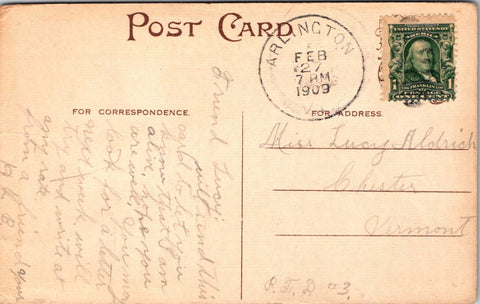 POST CARD
ARLINGTON
FEB
27
7 PM
1909
UNITED STATES OF
AMERICA
POSTAGE
1
1
FOR CORRESPONDENCE.
FOR ADDRESS.
Friend Lucy:
will send this
card to let you
know that I am
alive, hope you
are well. You may
look for a letter
next week will
try and write at
any rate.
from a friend
Miss Lucy Aldrich
Chester
Vermont